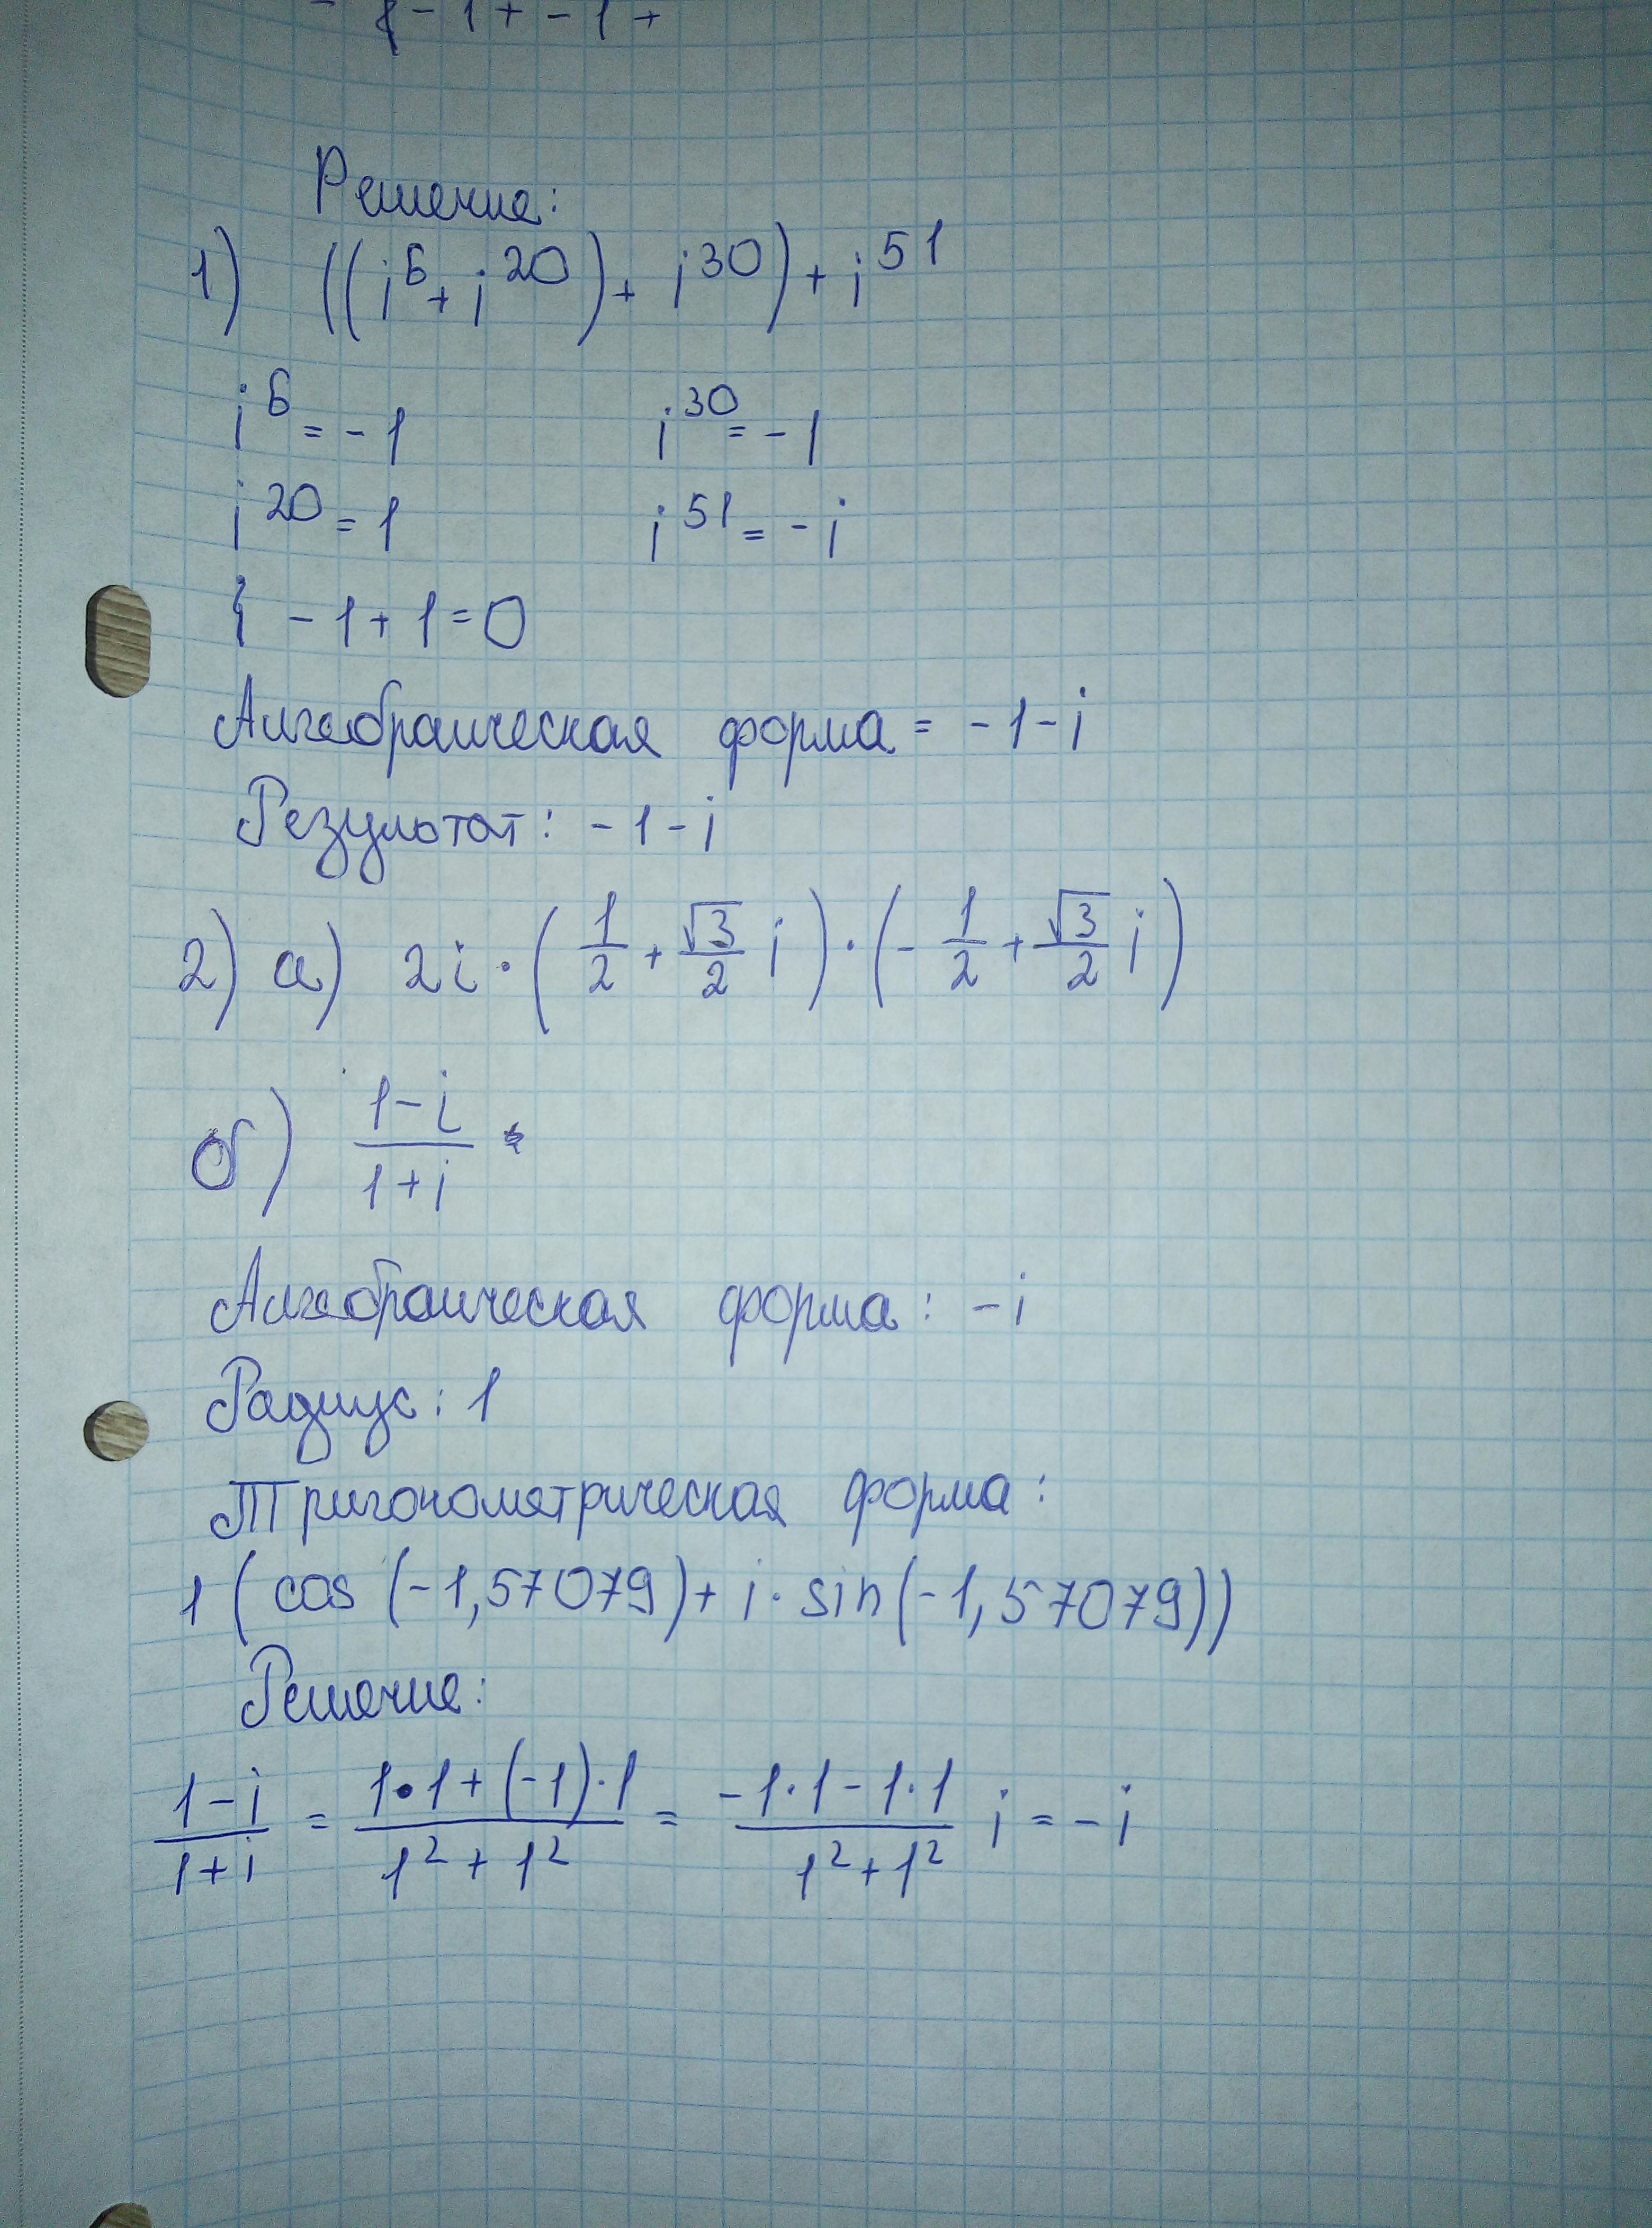 Решение:
1) ((i^6 + i^20) + i^30) + i^51
i^6 = -1    i^30 = -1
i^20 = 1    i^51 = -i
{ -1 + 1 = 0
Алгебраическая форма = -1 - i
Результат: -1 - i
2) а) 2i · (1/2 + √3/2 i) · (-1/2 + √3/2 i)
б) (1-i)/(1+i)
Алгебраическая форма: -i
Радиус: 1
Тригонометрическая форма:
1 (cos (-1,57079) + i · sin(-1,57079))
Решение:
(1-i)/(1+i) = (1·1 + (-1)·1)/(1^2 + 1^2) = (-1·1 - 1·1)/(1^2 + 1^2) i = -i